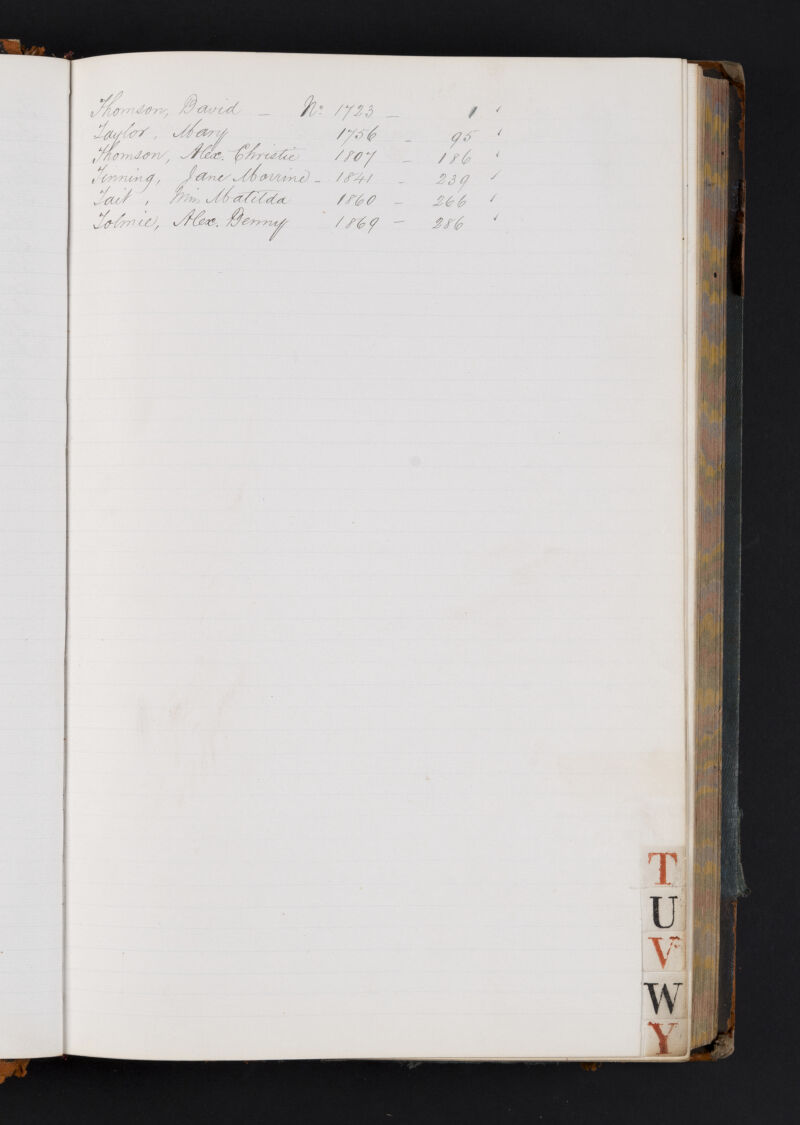 Thomson, David - No 1723 - 1 "
Taylor, Mary 1756 - 95 "
Thomson, Alex. Christie 1807 - 186 "
Tinning, Jane Morrine - 1841 - 239 "
Tait, Matilda 1860 - 266 "
Tolmie, Alex. Denny 1869 - 286 "
T
U
V
W
Y